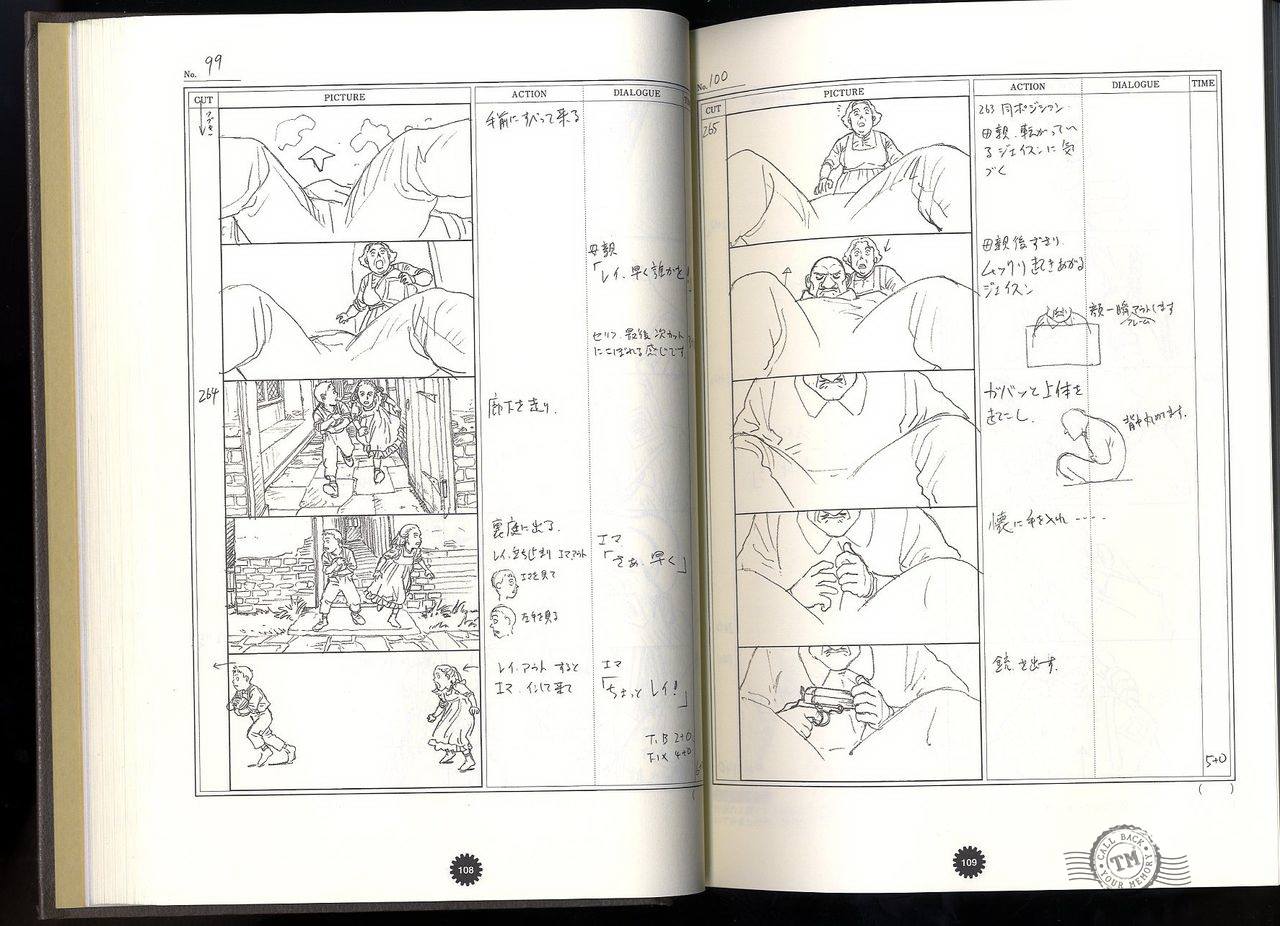 No. 99
CUT
PICTURE
ACTION
DIALOGUE
つづき
手前にすべって来る
母親
「レイ、早く誰かを
セリフ、最後、次カット
にこぼれる感じです
264
廊下を走り、
裏庭に出る。
レイ、立ち止まり エマ アウト
エマを見て
左手を見る
エマ
「さぁ、早く」
レイ、アウト すると
エマ、インして来て
エマ
「ちょっと レイ!」
T.B 2+0
FIX 4+0
108
No. 100
CUT
PICTURE
ACTION
DIALOGUE
TIME
265
263 同ポジション
母親、転がってい
るジェイスンに気
づく
母親後ずさり
ムックリ起きあがる
ジェイスン
顔一瞬アウトします
フレーム
ガバッと上体を
起こし、
背中丸めてます。
懐に手を入れ ‥‥
銃を出す。
5+0
( )
109
CALL BACK
TM
YOUR MEMORY